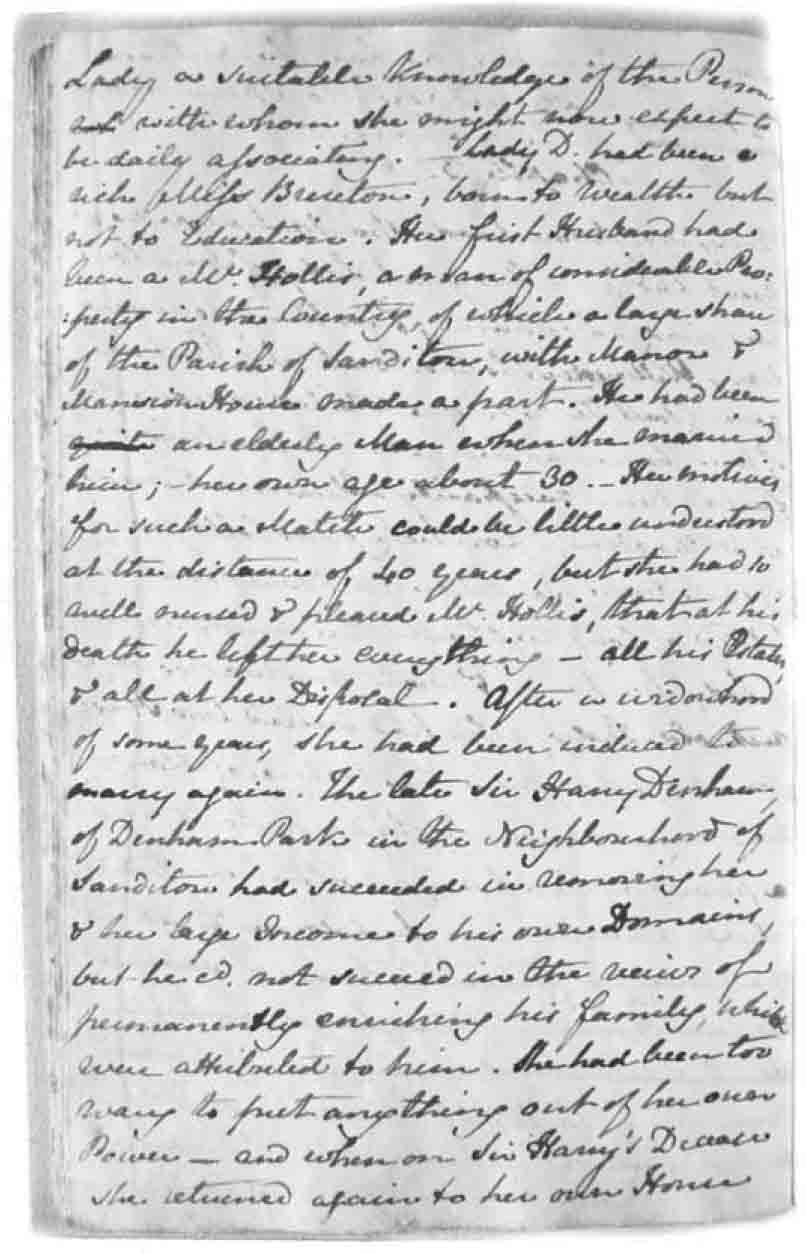 Lady a suitable Knowledge of the Person
with whom she might now expect to
be daily associating. – Lady D. had been a
rich Miss Brereton, born to Wealth but
not to Education. Her first Husband had
been a Mr. Hollis, a man of considerable Pro:
:perty in the Country, of which a large share
of the Parish of Sanditon, with Manor &
Mansion House made a part. He had been
quite an elderly Man when she married
him; – her own age about 30. – Her motives
for such a Match could be little understood
at the distance of 40 years, but she had so
well nursed & pleased Mr. Hollis, that at his
death he left her everything – all his Estates,
& all at her Disposal. After a widowhood
of some years, she had been induced to
marry again. The late Sir Harry Denham,
of Denham Park in the Neighbourhood of
Sanditon had succeeded in removing her
& her large Income to his own Domains,
but he cd. not succeed in the veiws of
permanently enriching his family, which
were attributed to him. She had been too
wary to put anything out of her own
Power – and when on Sir Harry's Decease
she returned again to her own House